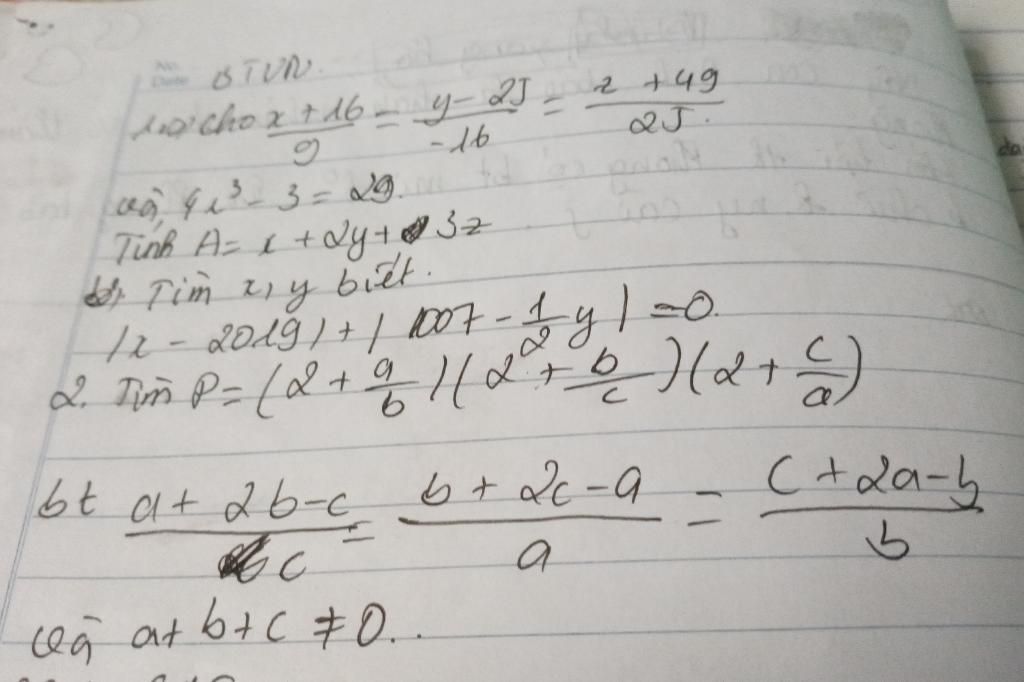 No.
Date
BTVN.
1. a) cho x + 16 / 9 = y - 25 / -16 = z + 49 / 25.
và 4x³ - 3 = 29.
Tính A = x + 2y + 3z
b, Tìm x, y biết.
|x - 2019| + | 1007 - 1/2 y | = 0.
2. Tìm P = (2 + a/b)(2 + b/c)(2 + c/a)
bt a + 2b - c / c = b + 2c - a / a = c + 2a - b / b
và a + b + c ≠ 0..